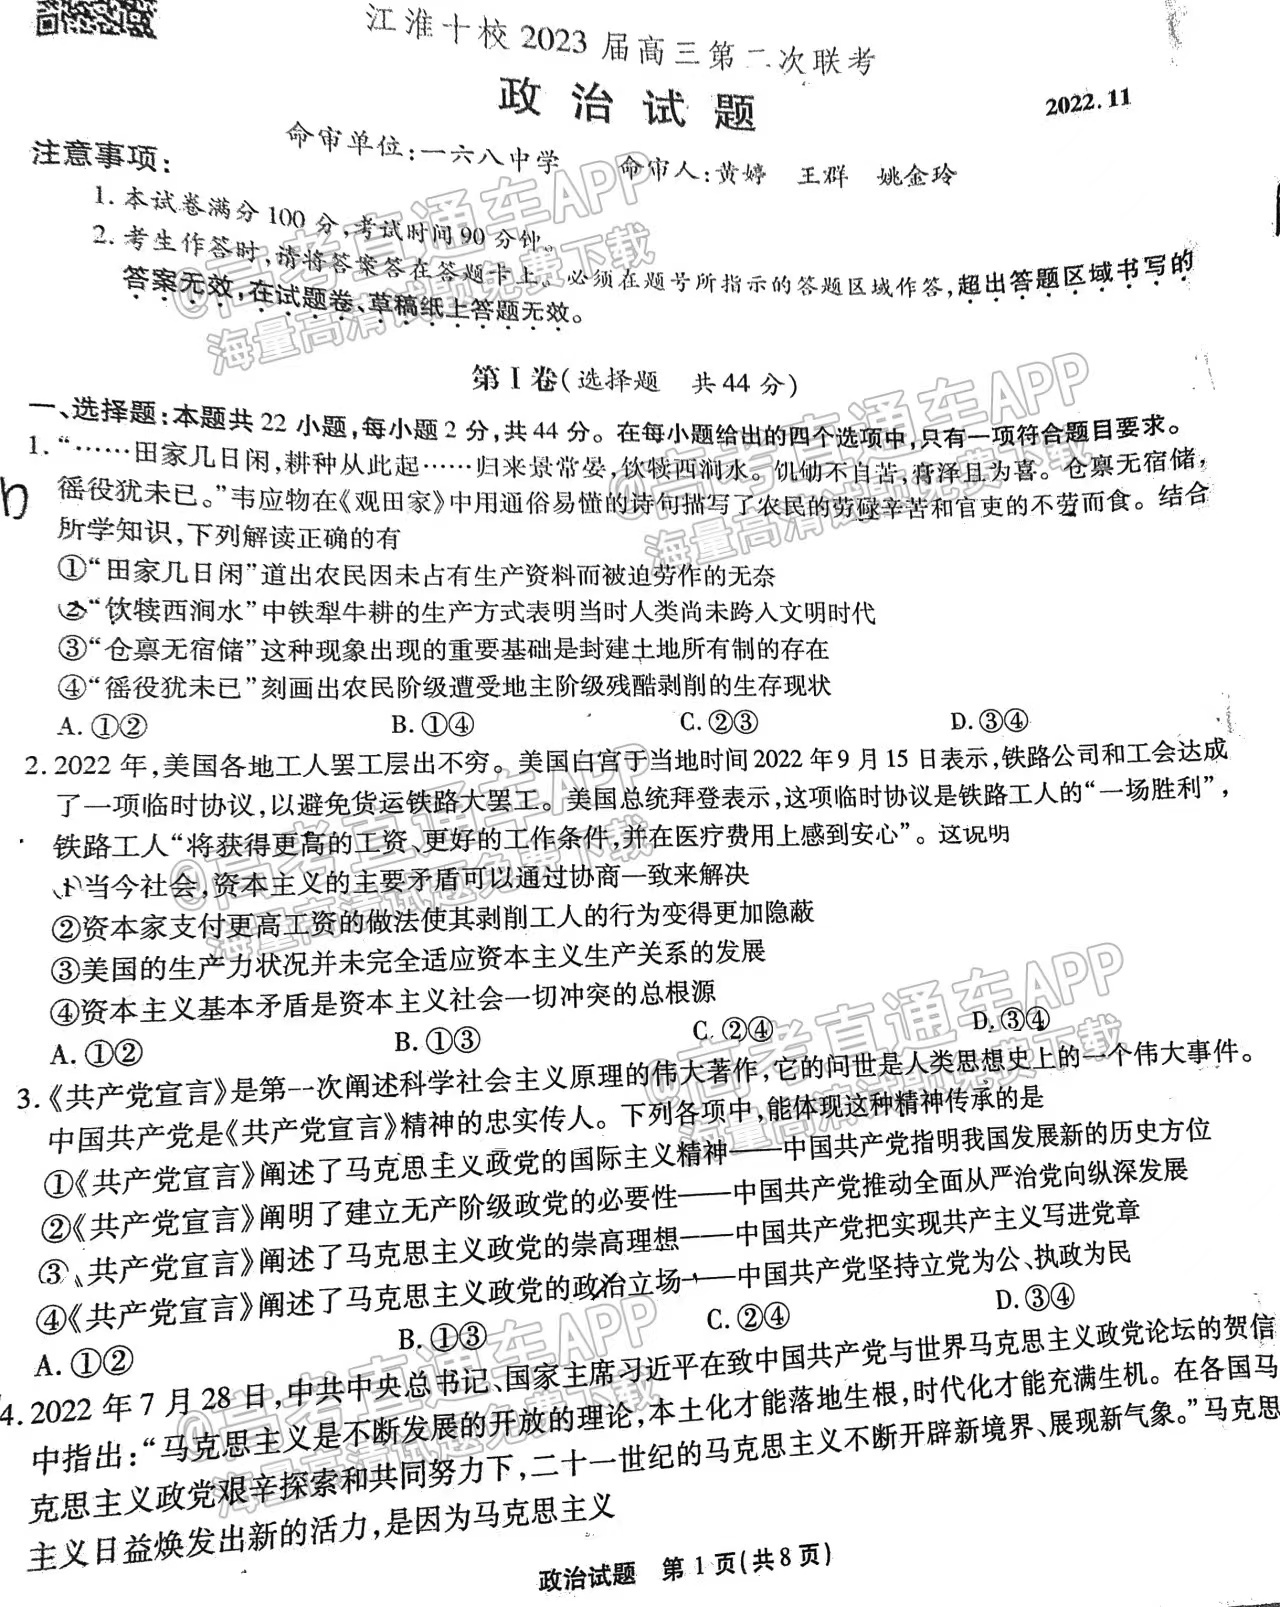 江淮十校2023届高三第二次联考
政治试题
2022.11
命审单位:一六八中学 命审人:黄婷 王群 姚金玲
注意事项:
1.本试卷满分100分,考试时间90分钟。
2.考生作答时,请将答案答在答题卡上。必须在题号所指示的答题区域作答,超出答题区域书写的
答案无效,在试题卷、草稿纸上答题无效。
第Ⅰ卷(选择题 共44分)
一、选择题:本题共22小题,每小题2分,共44分。在每小题给出的四个选项中,只有一项符合题目要求。
1.“……田家几日闲,耕种从此起……归来景常晏,饮犊西涧水。饥劬不自苦,膏泽且为喜。仓禀无宿储,
徭役犹未已。”韦应物在《观田家》中用通俗易懂的诗句描写了农民的劳碌辛苦和官吏的不劳而食。结合
所学知识,下列解读正确的有
①“田家几日闲”道出农民因未占有生产资料而被迫劳作的无奈
②“饮犊西涧水”中铁犁牛耕的生产方式表明当时人类尚未跨入文明时代
③“仓禀无宿储”这种现象出现的重要基础是封建土地所有制的存在
④“徭役犹未已”刻画出农民阶级遭受地主阶级残酷剥削的生存现状
A.①② B.①④ C.②③ D.③④
2.2022年,美国各地工人罢工层出不穷。美国白宫于当地时间2022年9月15日表示,铁路公司和工会达成
了一项临时协议,以避免货运铁路大罢工。美国总统拜登表示,这项临时协议是铁路工人的“一场胜利”,
铁路工人“将获得更高的工资、更好的工作条件,并在医疗费用上感到安心”。这说明
①当今社会,资本主义的主要矛盾可以通过协商一致来解决
②资本家支付更高工资的做法使其剥削工人的行为变得更加隐蔽
③美国的生产力状况并未完全适应资本主义生产关系的发展
④资本主义基本矛盾是资本主义社会一切冲突的总根源
A.①② B.①③ C.②④ D.③④
3.《共产党宣言》是第一次阐述科学社会主义原理的伟大著作,它的问世是人类思想史上的一个伟大事件。
中国共产党是《共产党宣言》精神的忠实传人。下列各项中,能体现这种精神传承的是
①《共产党宣言》阐述了马克思主义政党的国际主义精神——中国共产党指明我国发展新的历史方位
②《共产党宣言》阐明了建立无产阶级政党的必要性——中国共产党推动全面从严治党向纵深发展
③《共产党宣言》阐述了马克思主义政党的崇高理想——中国共产党把实现共产主义写进党章
④《共产党宣言》阐述了马克思主义政党的政治立场——中国共产党坚持立党为公、执政为民
A.①② B.①③ C.②④ D.③④
4.2022年7月28日,中共中央总书记、国家主席习近平在致中国共产党与世界马克思主义政党论坛的贺信
中指出:“马克思主义是不断发展的开放的理论,本土化才能落地生根,时代化才能充满生机。在各国马
克思主义政党艰辛探索和共同努力下,二十一世纪的马克思主义不断开辟新境界、展现新气象。”马克思
主义日益焕发出新的活力,是因为马克思主义
政治试题 第1页(共8页)
@高考直通车APP
海量高清试题免费下载
@高考直通车APP
海量高清试题免费下载
@高考直通车APP
海量高清试题免费下载
@高考直通车APP
海量高清试题免费下载
@高考直通车APP
海量高清试题免费下载